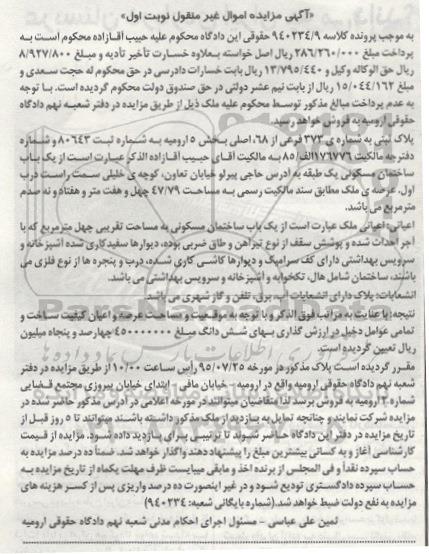 «آگهی مزایده اموال غیر منقول نوبت اول»
به موجب پرونده کلاسه ۹۴۰۲۳۴/۹ حقوقی این دادگاه محکوم علیه حبیب آقازاده محکوم است به
پرداخت مبلغ ۲۸۶/۲۶۰/۰۰۰ ریال اصل خواسته بعلاوه خسارت تأخیر تأدیه و مبلغ ۸/۹۲۷/۸۰۰
ریال حق الوکاله وکیل و ۱۳/۷۹۵/۴۴۰ ریال بابت خسارات دادرسی در حق محکوم له حجت سعدی و
مبلغ ۱۵/۰۴۴/۱۶۲ ریال از بابت نیم عشر دولتی در حق صندوق دولت محکوم گردیده است. با توجه
به عدم پرداخت مبالغ مذکور توسط محکوم علیه ملک ذیل از طریق مزایده در دفتر شعبه نهم دادگاه
حقوقی ارومیه به فروش خواهد رسید.
پلاک ثبتی به شماره ی ۳۷۳ فرعی از ۶۸، اصلی بخش ۵ ارومیه به شماره ثبت ۸۰۶۴۳ و شماره
دفترچه مالکیت ۱۷۶۷۷۶الف/۸۵ به مالکیت آقای حبیب آقازاده الذکر عبارت است از یک باب
ساختمان مسکونی یک طبقه به آدرس حاجی پیرلو خیابان تعاون، کوچه ی خلیلی سمت راست درب
اول. عرصه ی ملک مطابق سند مالکیت رسمی به مساحت ۴۷/۷۹ چهل و هفت متر و هفتاد و نه صدم
مترمربع می باشد.
اعیانی: اعیانی ملک عبارت است از یک باب ساختمان مسکونی به مساحت تقریبی چهل مترمربع که با
آجر احداث شده و پوشش سقف از نوع تیرآهن و طاق ضربی بوده، دیوارها سفیدکاری شده آشپزخانه و
سرویس بهداشتی دارای کف سرامیک و دیوارها کاشی کاری شده، درب و پنجره ها از نوع فلزی می
باشند، ساختمان شامل هال، تکخوابه و آشپزخانه و سرویس بهداشتی می باشد.
انشعابات: پلاک دارای انشعابات آب، برق، تلفن و گاز شهری می باشد.
نتیجه: با عنایت به مراتب فوق الذکر و با توجه به موقعیت و مساحت عرصه و اعیان کیفیت ساخت و
تمامی عوامل دخیل در ارزش گذاری بهای شش دانگ مبلغ ۴۵۰۰۰۰۰۰۰ چهارصد و پنجاه میلیون
ریال تعیین گردیده است.
مقرر گردیده است پلاک مذکور در مورخه ۹۵/۰۷/۲۵ راس ساعت ۱۰/۰۰ از طریق مزایده در دفتر
شعبه نهم دادگاه حقوقی ارومیه واقع در ارومیه - خیابان مافی - ابتدای خیابان پیروزی مجتمع قضایی
شماره ۲ ارومیه به فروش برسد لذا متقاضیان میتوانند در مورخه اعلامی در آدرس مذکور حاضر شده در
مزایده شرکت نمایند و چنانچه تمایل به بازدید از ملک مذکور داشته باشند میتوانند تا ۵ روز قبل از
تاریخ مزایده در دفتر این دادگاه حاضر شوند تا ترتیبی برای بازدید داده شود. مزایده از قیمت
کارشناسی آغاز و به کسانی بیشترین مبلغ را پیشنهاد دهند واگذار خواهد شد. ضمناً ده درصد مزایده به
حساب سپرده نقداً و فی المجلس از برنده اخذ و مابقی میبایست ظرف مهلت یکماه از تاریخ مزایده به
حساب سپرده دادگستری تودیع شود و در غیر اینصورت ده درصد واریزی پس از کسر هزینه های
مزایده به نفع دولت ضبط خواهد شد. (شماره بایگانی شعبه: ۹۴۰۲۳۴)
ثمین علی عباسی - مسئول اجرای احکام مدنی شعبه نهم دادگاه حقوقی ارومیه